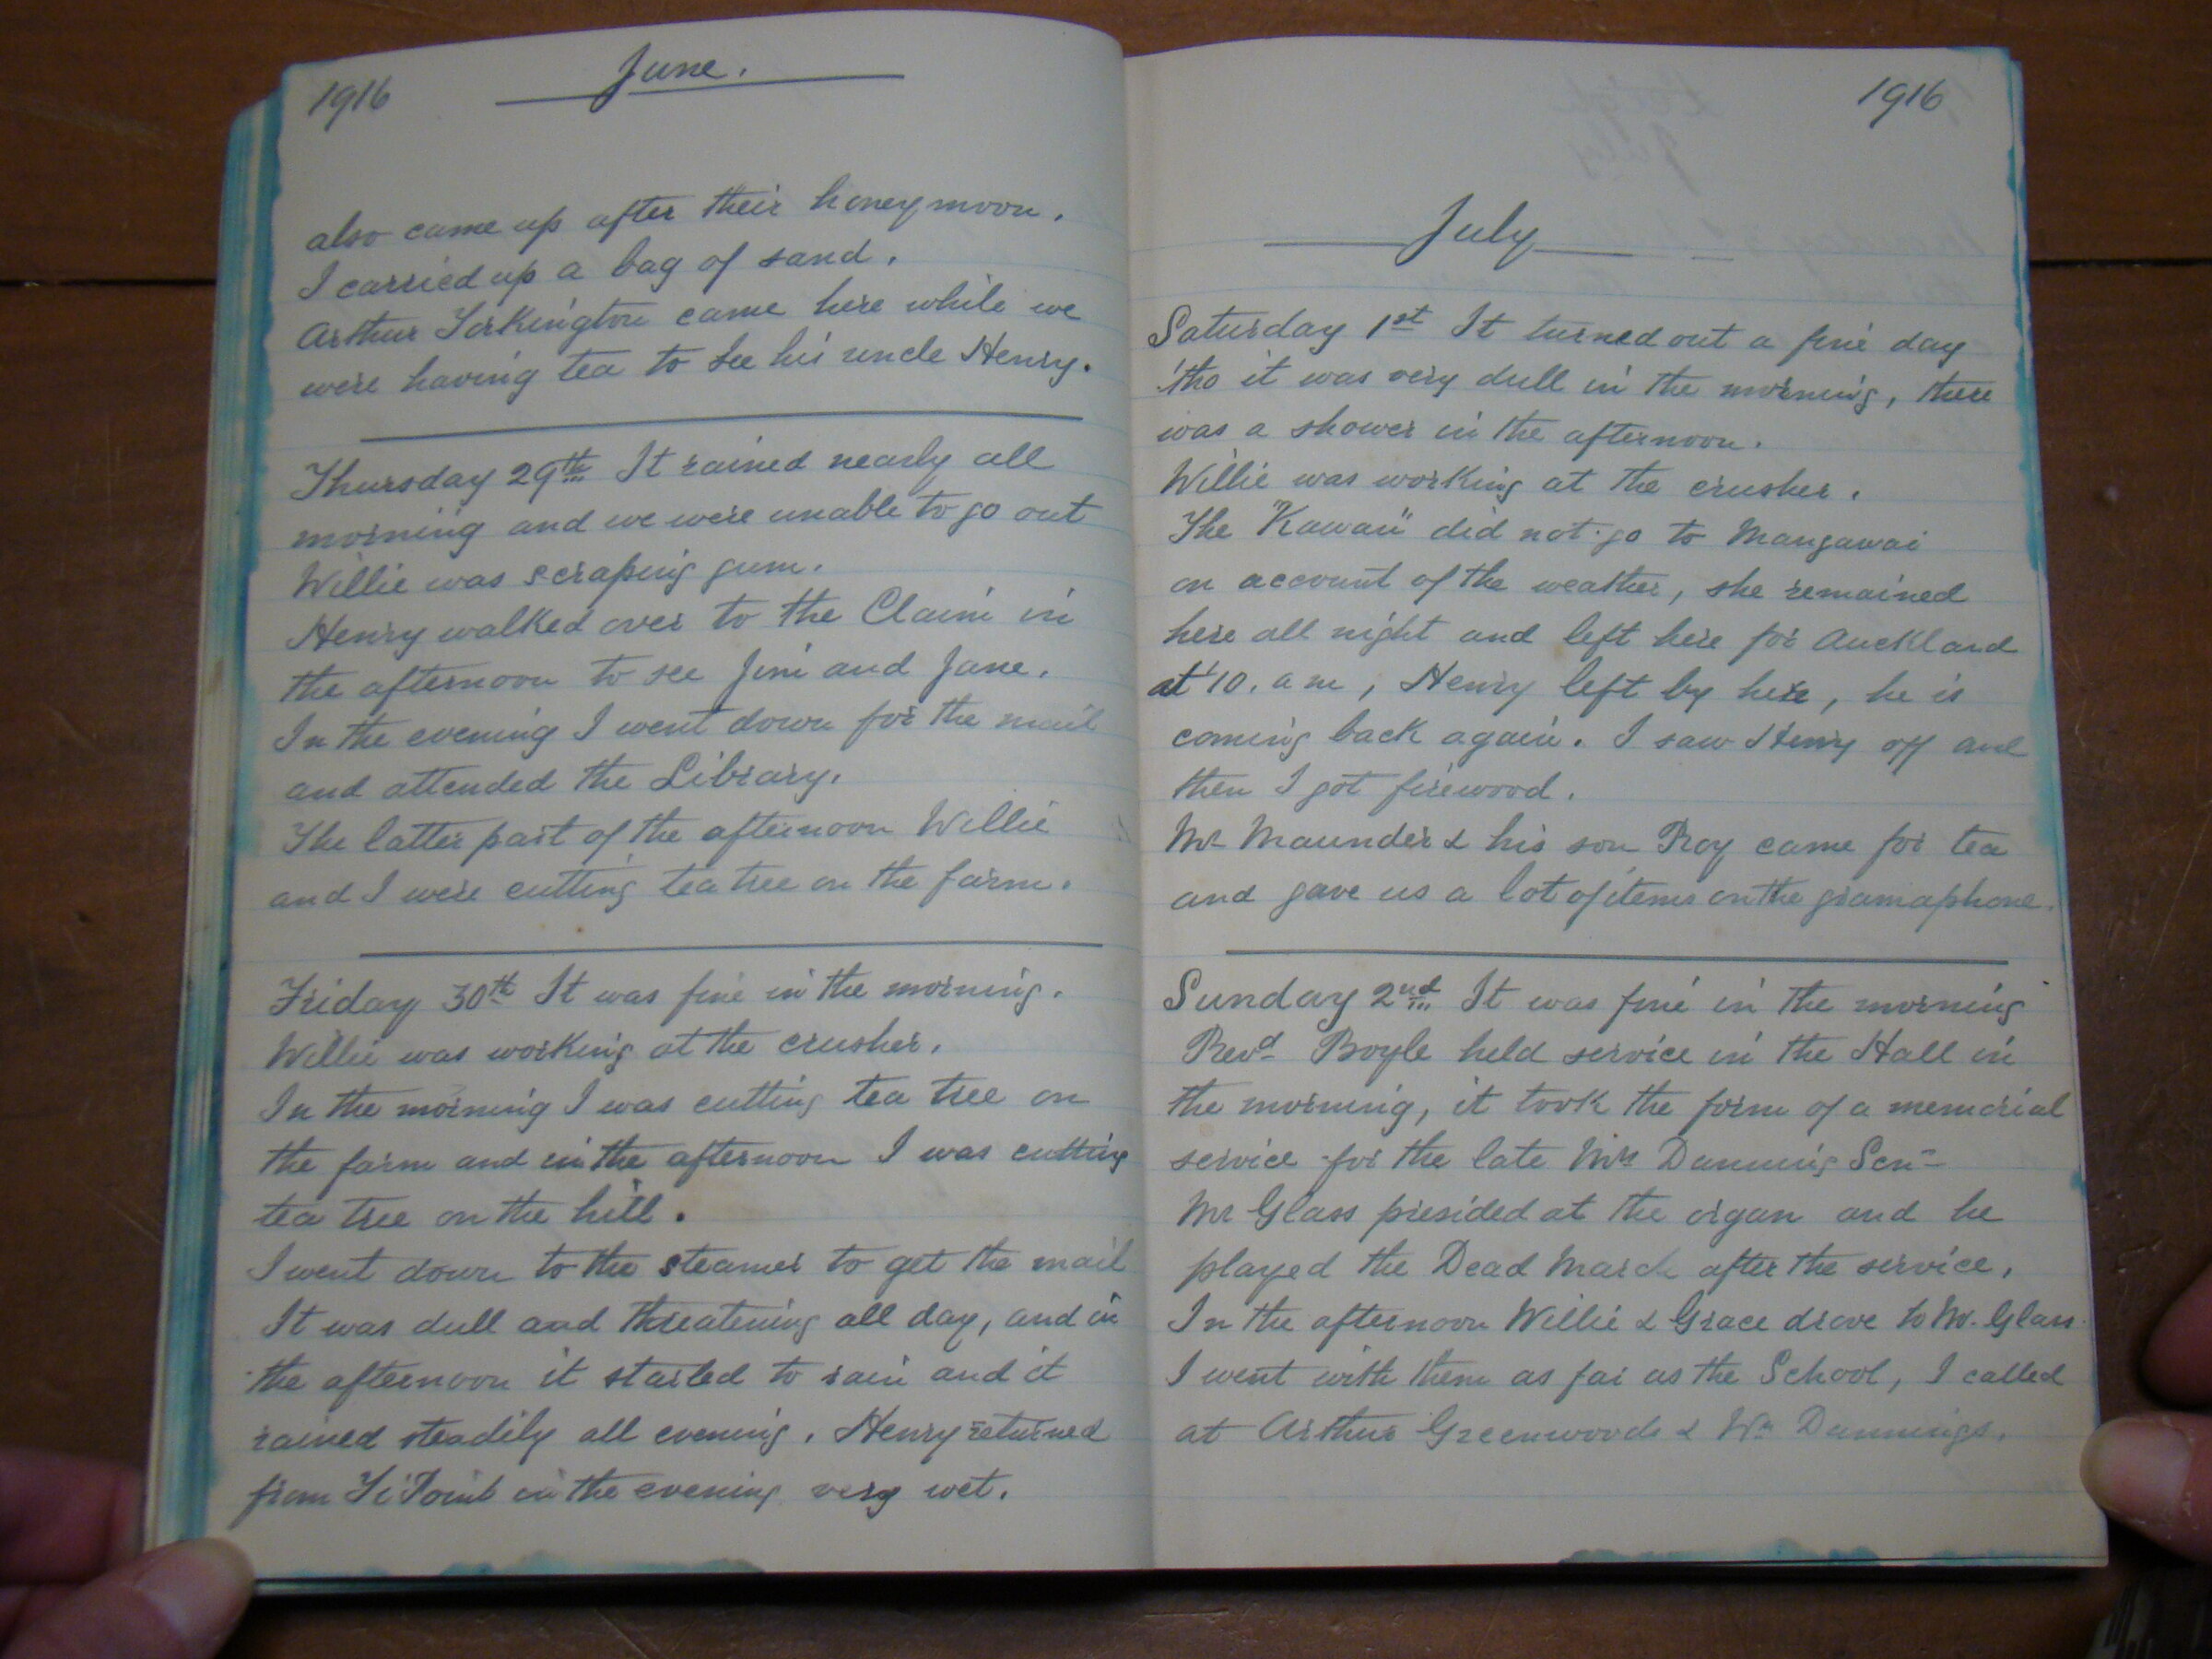 1916
June.
also came up after their honeymoon.
I carried up a bag of sand.
Arthur Torkington came here while we
were having tea to see his uncle Henry.
Thursday 29th It rained nearly all
morning and we were unable to go out
Willie was scraping gum.
Henry walked over to the Claim in
the afternoon to see Jim and Jane.
In the evening I went down for the mail
and attended the Library.
The latter part of the afternoon Willie
and I were cutting tea tree on the farm.
Friday 30th It was fine in the morning.
Willie was working at the crusher.
In the morning I was cutting tea tree on
the farm and in the afternoon I was cutting
tea tree on the hill.
I went down to the steamer to get the mail
It was dull and threatening all day, and in
the afternoon it started to rain and it
rained steadily all evening. Henry returned
from Ti Point in the evening very wet.
1916
July
Saturday 1st It turned out a fine day
'tho it was very dull in the morning, there
was a shower in the afternoon.
Willie was working at the crusher.
The "Kawau" did not go to Mangawai
on account of the weather, she remained
here all night and left here for Auckland
at 10. a m, Henry left by here, he is
coming back again. I saw Henry off and
then I got firewood.
Mr Maunder & his son Roy came for tea
and gave us a lot of items on the gramaphone.
Sunday 2nd It was fine in the morning
Revd Boyle held service in the Hall in
the morning, it took the form of a memorial
service for the late Mrs Dunning Senr
Mr Glass presided at the organ and he
played the Dead March after the service.
In the afternoon Willie & Grace drove to Mr. Glass
I went with them as far as the School, I called
at Arthur Greenwoods & Wm Dunnings.